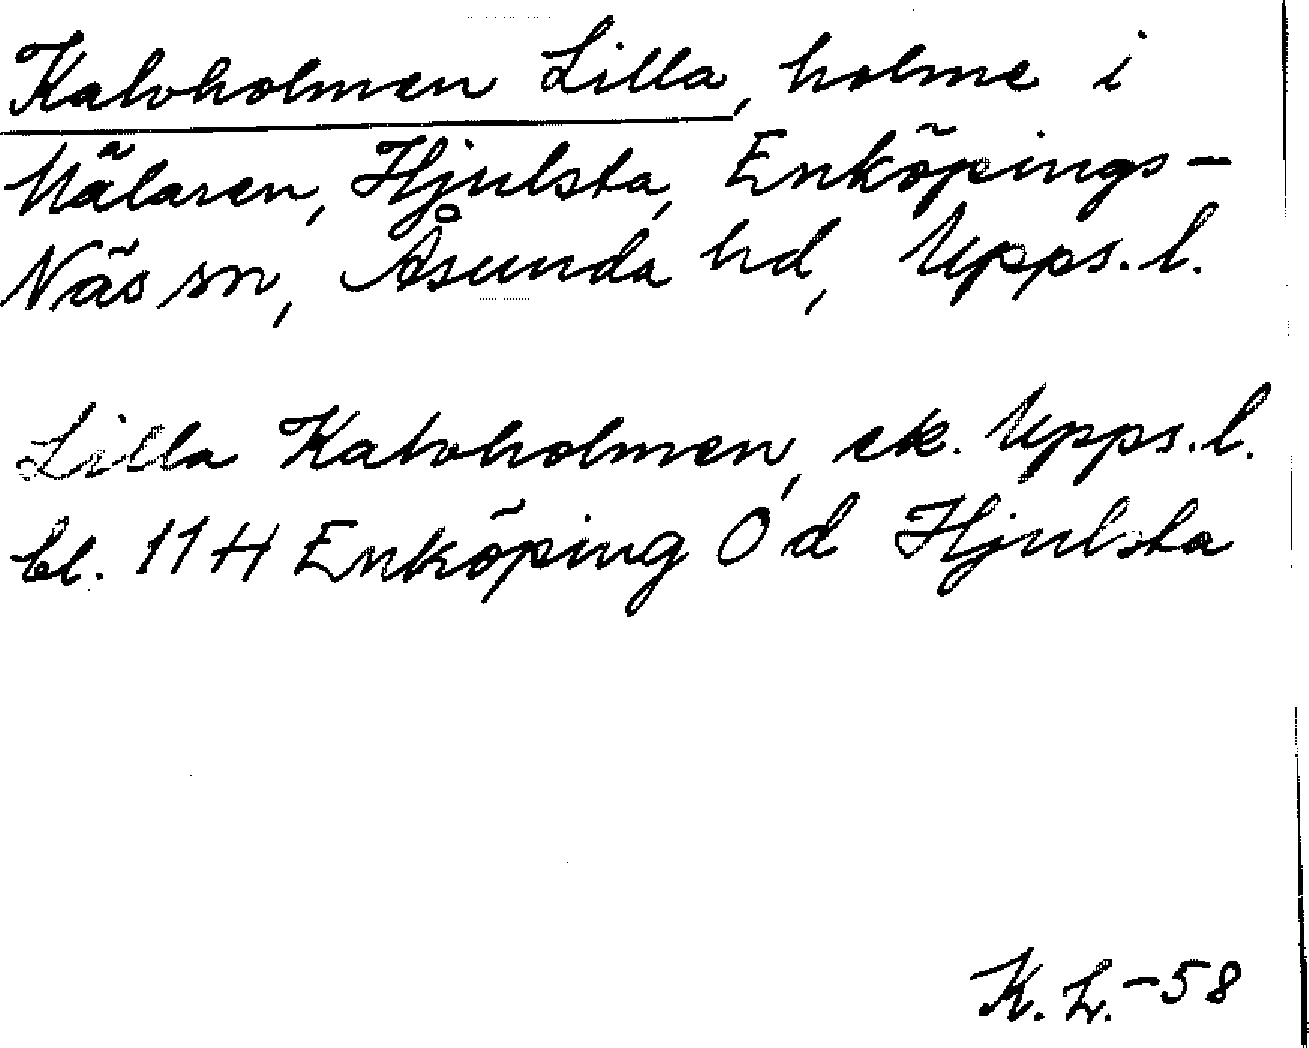 Kalvholmen Lilla, holme i
Mälaren, Hjulsta, Enköpings-
Näs sn, Åsunda hd, Upps. l.
Lilla Kalvholmen, ek. Upps. l.
bl. 11 H Enköping Ö d Hjulsta
K. L. -58